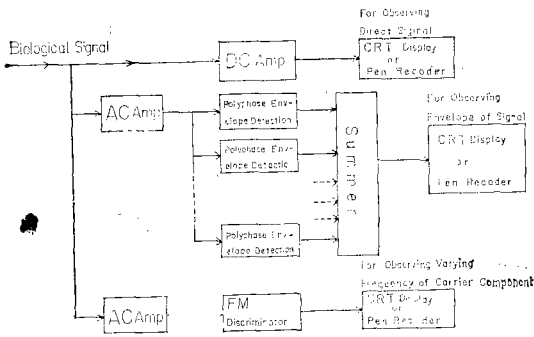 Biological Signal
DC Amp
For Observing
Direct Signal
CRT Display
or
Pen Recoder
AC Amp
Polyphase Env-
elope Detection
Polyphase Env-
elope Detectic
Polyphase Env-
elope Detection
Summer
For Observing
Envelope of Signal
CRT Display
or
Pen Recoder
AC Amp
FM
Discriminator
For Observing Varying
Frequency of Carrier Component
CRT Display
or
Pen Recoder